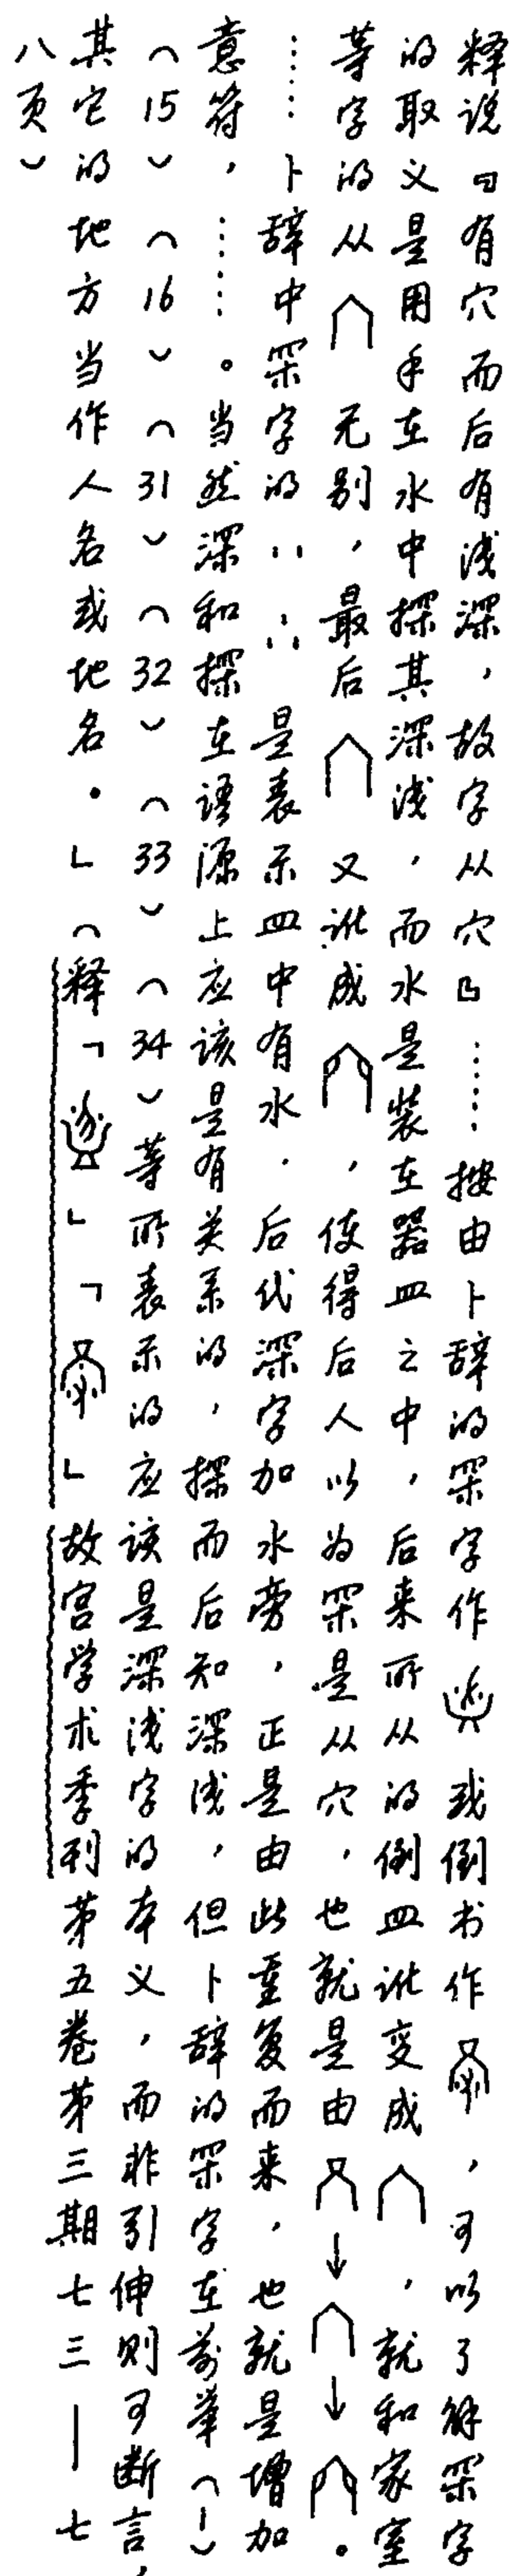 释说﹃有穴而后有浅深，故字从穴﹄……按由卜辞的罙字作 或倒书作 ，可以了解罙字
的取义是用手在水中探其深浅，而水是装在器皿之中，后来所从的倒皿讹变成 ，就和家室
等字的从 无别，最后 又讹成 ，使得后人以为罙是从穴，也就是由 → → 。
……卜辞中罙字的 是表示皿中有水．后代深字加水旁，正是由此重复而来，也就是增加
意符，……。当然深和探在语源上应该是有关系的，探而后知深浅，但卜辞的罙字在前举（1）
（15）（16）（31）（32）（33）（34）等所表示的应该是深浅字的本义，而非引伸则可断言，
其它的地方当作人名或地名．」（释「 」「 」故宫学术季刊第五卷第三期七三—七
八页）